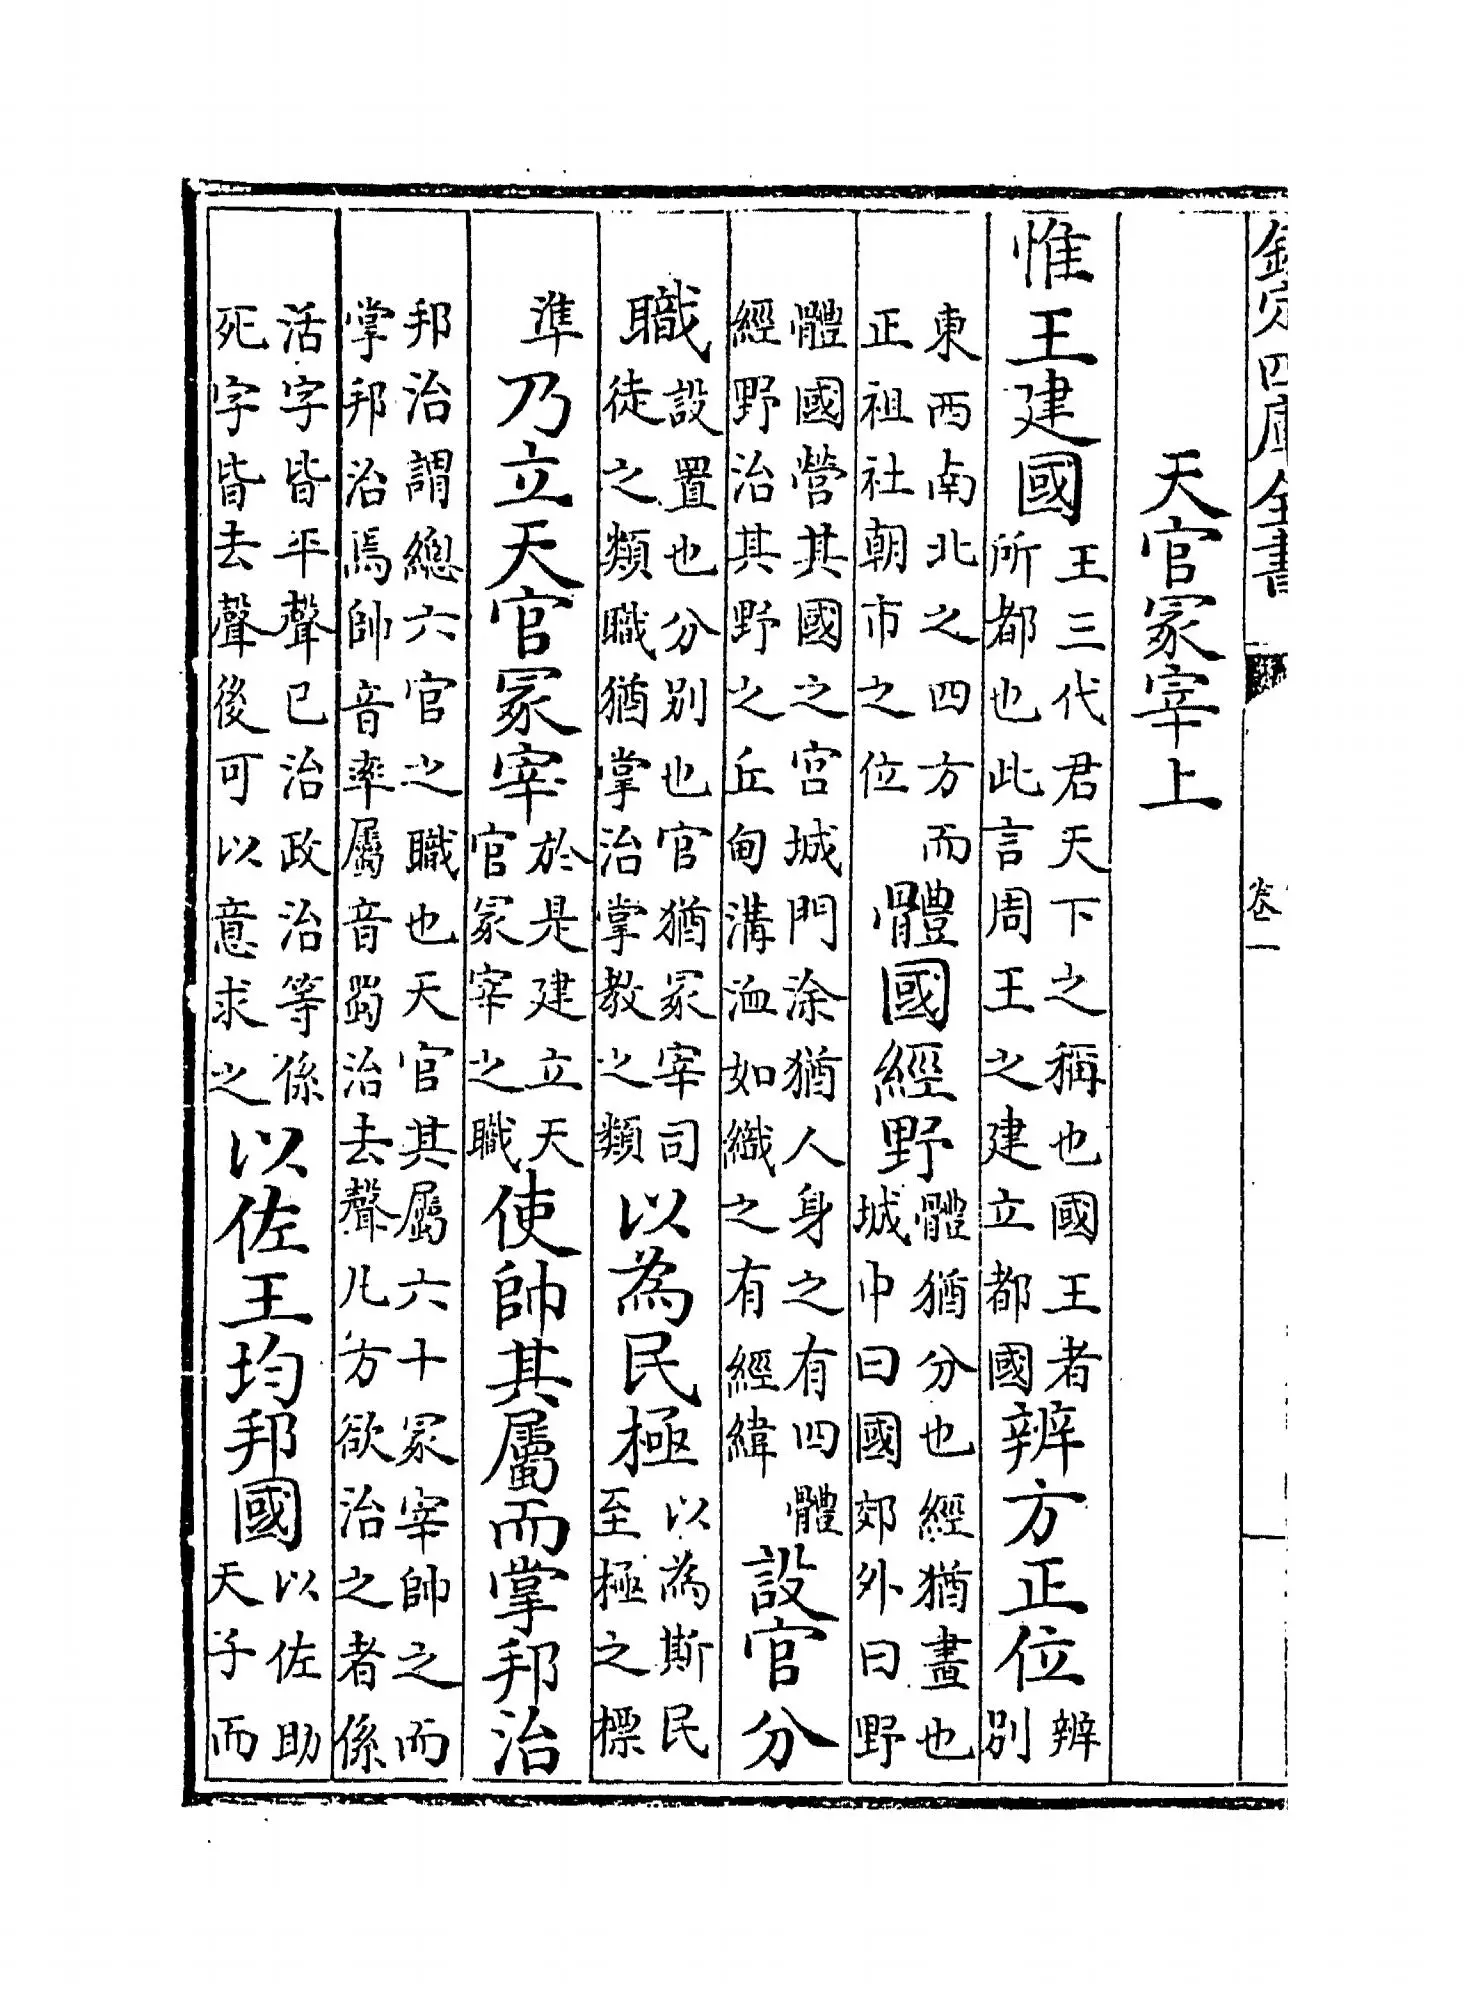 欽定四庫全書 卷一
天官冢宰上
惟王建國王三代君天下之稱也國王者所都也此言周王之建立都國辨方正位辨別
東西南北之四方而正祖社朝市之位體國經野體猶分也經猶畫也城中曰國郊外曰野
體國營其國之宮城門涂猶人身之有四體經野治其野之丘甸溝洫如織之有經緯設官分
職設置也分別也官猶冢宰司徒之類職猶掌治掌教之類以為民極以為斯民至極之標
準乃立天官冢宰於是建立天官冢宰之職使帥其屬而掌邦治
邦治謂總六官之職也天官其屬六十冢宰帥之而掌邦治焉帥音率屬音蜀治去聲凡方欲治之者係
活字皆平聲已治政治等係死字皆去聲後可以意求之以佐王均邦國以佐助天子而